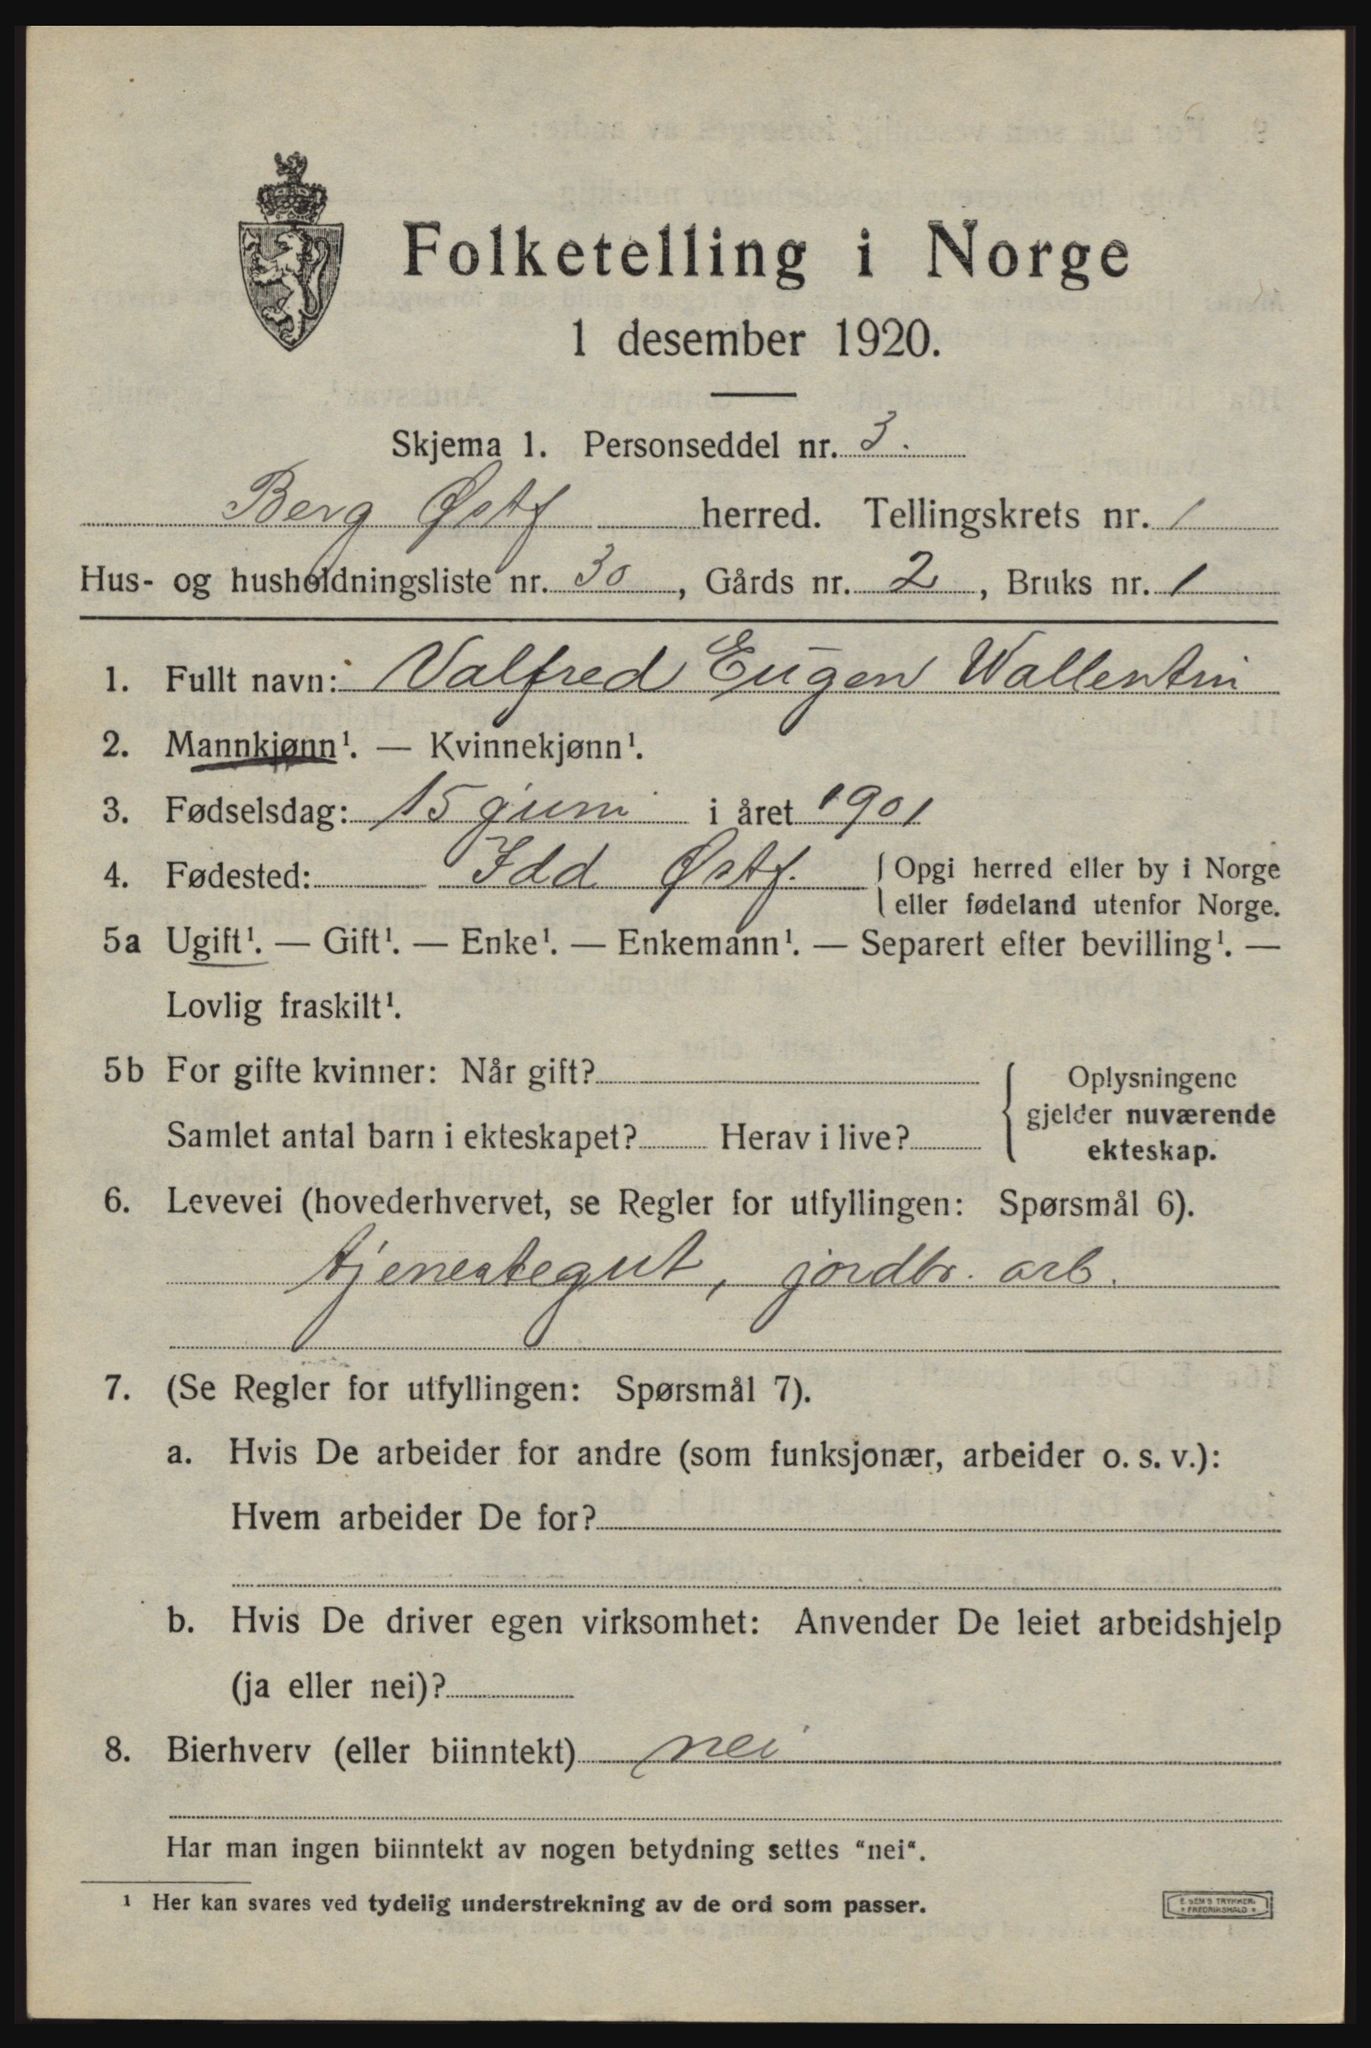 Folketelling i Norge
1 desember 1920.
Skjema 1. Personseddel nr. 3.
Berg Østf herred. Tellingskrets nr. 1
Hus- og husholdningsliste nr. 30, Gårds nr. 2, Bruks nr. 1
1. Fullt navn: Valfred Eugen Wallentin
2. Mannkjønn¹. — Kvinnekjønn¹.
3. Fødselsdag: 15 juni i året 1901
4. Fødested: Idd Østf. Opgi herred eller by i Norge
eller fødeland utenfor Norge.
5a Ugift¹. — Gift¹. — Enke¹. — Enkemann¹. — Separert efter bevilling¹. —
Lovlig fraskilt¹.
5b For gifte kvinner: Når gift? Oplysningene
gjelder nuværende
Samlet antal barn i ekteskapet? Herav i live? ekteskap.
6. Levevei (hovederhvervet, se Regler for utfyllingen: Spørsmål 6).
tjenestegut, jordbr. arb.
7. (Se Regler for utfyllingen: Spørsmål 7).
a. Hvis De arbeider for andre (som funksjonær, arbeider o. s. v.):
Hvem arbeider De for?
b. Hvis De driver egen virksomhet: Anvender De leiet arbeidshjelp
(ja eller nei)?
8. Bierhverv (eller biinntekt) nei
Har man ingen biinntekt av nogen betydning settes "nei".
¹ Her kan svares ved tydelig understrekning av de ord som passer.
FREDRIKSHALD